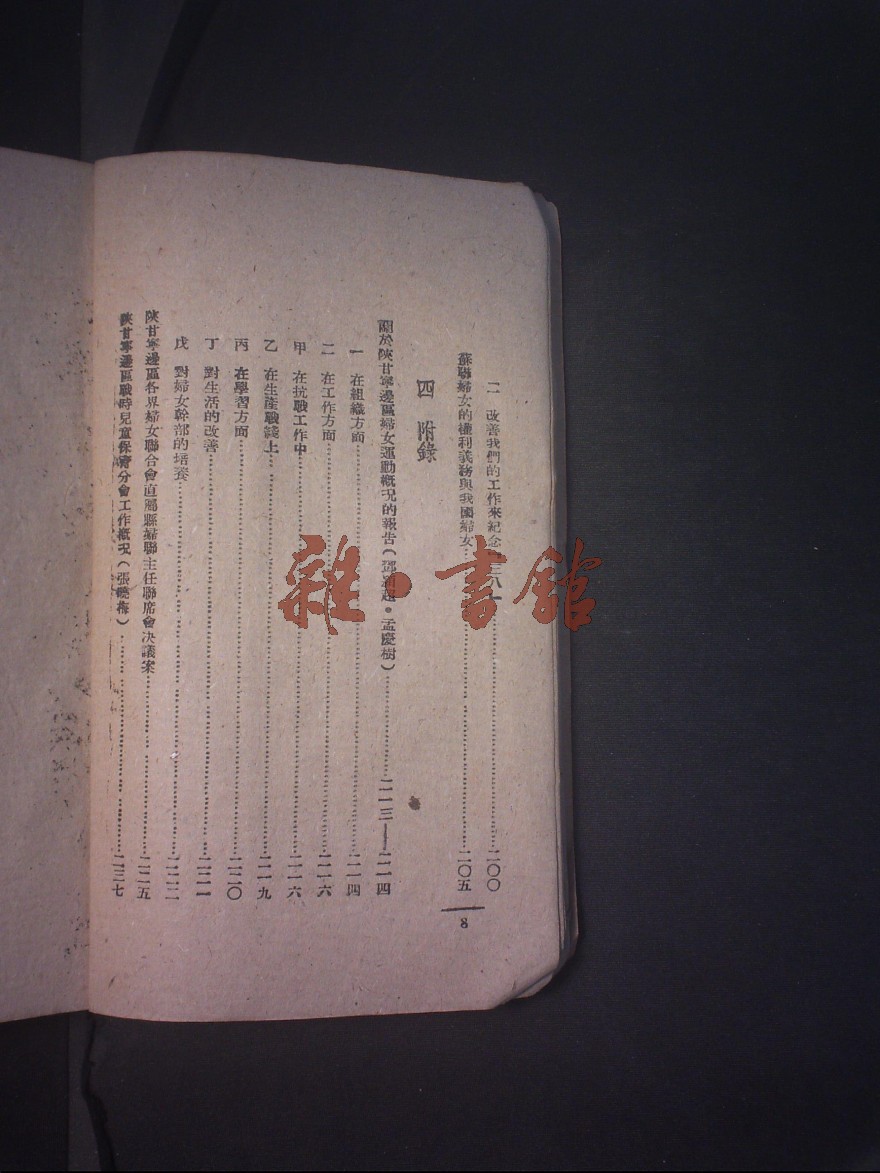 二 改善我們的工作來紀念「三八」……二〇〇
蘇聯婦女的權利義務與我國婦女……二〇五
四 附錄
關於陝甘寧邊區婦女運動概況的報告(鄧穎超·孟慶樹)……二一三——二一四
一 在組織方面……二一四
二 在工作方面……二一六
甲 在抗戰工作中……二一六
乙 在生產戰綫上……二一九
丙 在學習方面……二二〇
丁 對生活的改善……二二一
戊 對婦女幹部的培養……二二二
陝甘寧邊區各界婦女聯合會直屬縣婦聯主任聯席會決議案……二二五
陝甘寧邊區戰時兒童保育分會工作概況(張曉梅)……二三七
8
雜·書館